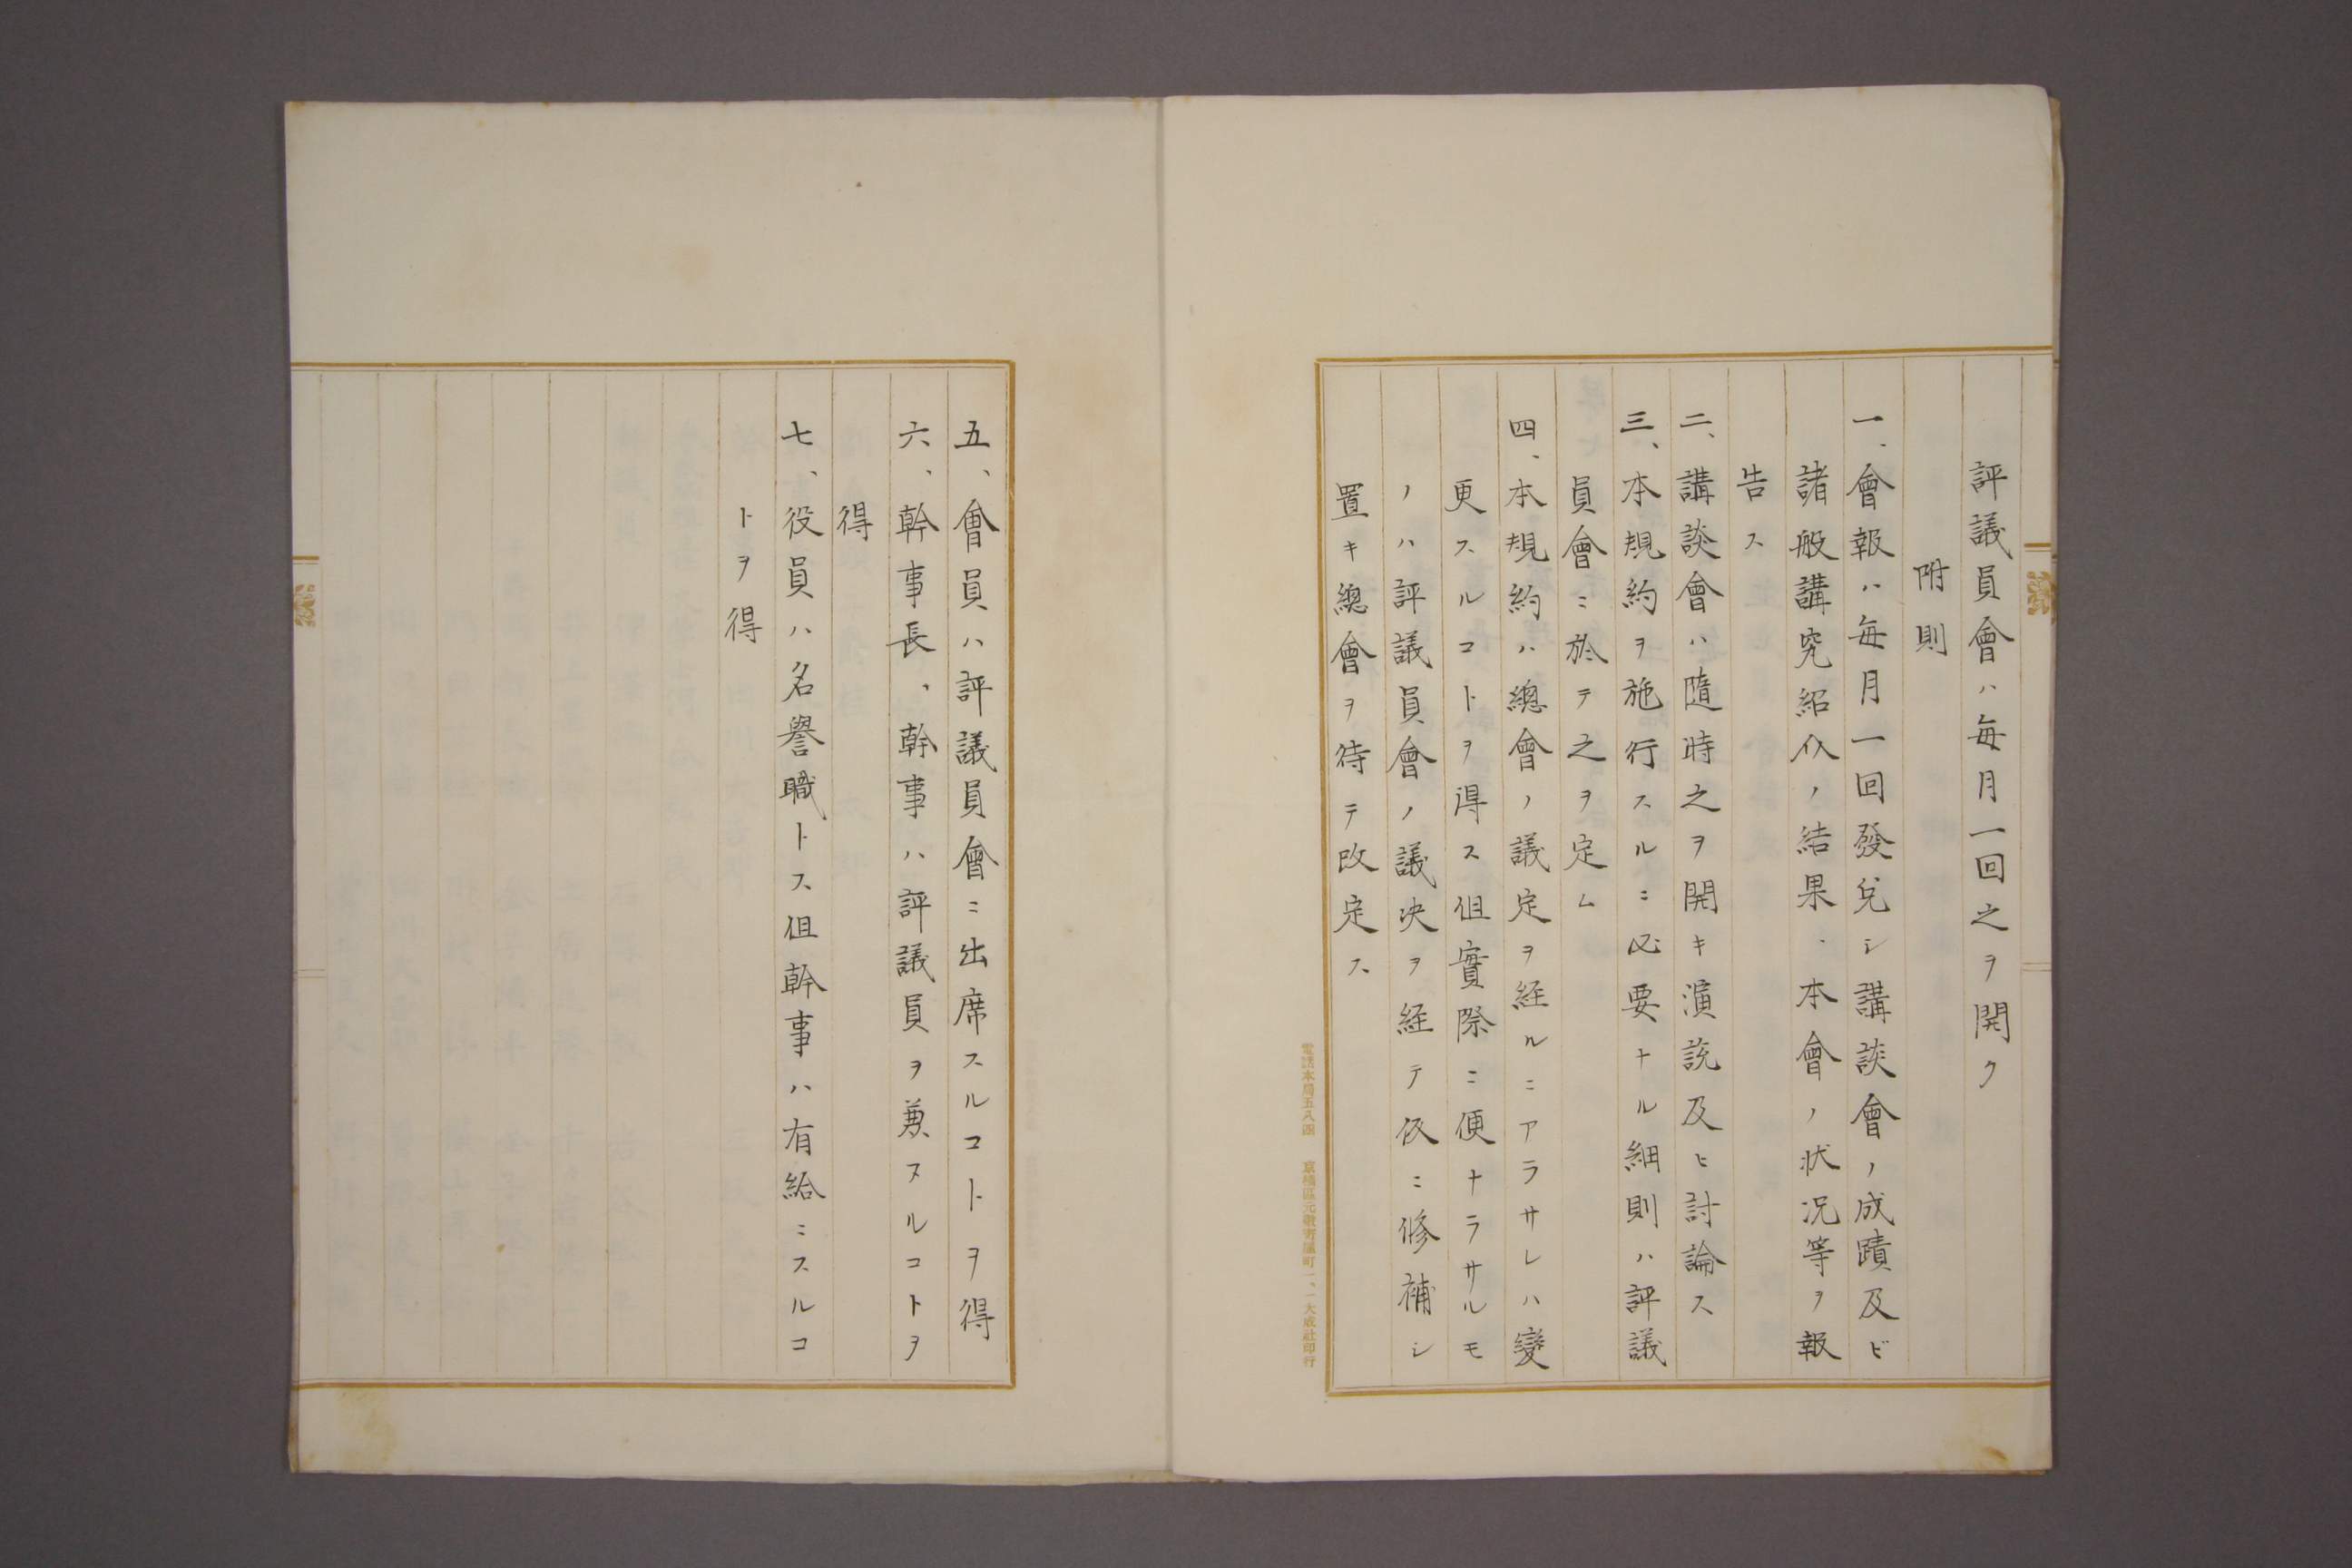 評議員會ハ毎月一回之ヲ開ク
附則
一、會報ハ毎月一回發兌シ講談會ノ成蹟及ビ
諸般講究紹介ノ結果、本會ノ状况等ヲ報
告ス
二、講談會ハ隨時之ヲ開キ演説及ヒ討論ス
三、本規約ヲ施行スルニ必要ナル細則ハ評議
員會ニ於テ之ヲ定ム
四、本規約ハ總會ノ議定ヲ経ルニアラサレハ變
更スルコトヲ得ス但實際ニ便ナラサルモ
ノハ評議員會ノ議决ヲ経テ仮ニ修補シ
置キ總會ヲ待テ改定ス
電話本局五八四 京橋區元數寄屋町一、一大成社印行
五、會員ハ評議員會ニ出席スルコトヲ得
六、幹事長、幹事ハ評議員ヲ兼ヌルコトヲ
得
七、役員ハ名譽職トス但幹事ハ有給ニスルコ
トヲ得